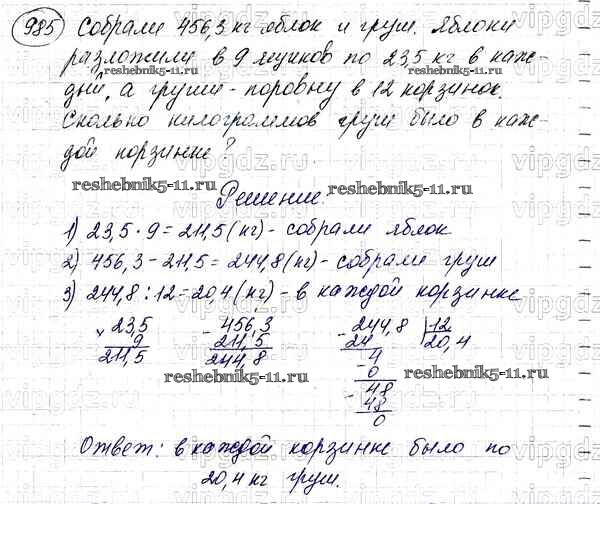 985 Собрали 456,3 кг яблок и груш. Яблоки
разложили в 9 ящиков по 23,5 кг в каж-
дый, а груши - поровну в 12 корзинок.
Сколько килограммов груш было в каж-
дой корзинке?
Решение.
1) 23,5 · 9 = 211,5 (кг) - собрали яблок
2) 456,3 - 211,5 = 244,8 (кг) - собрали груш
3) 244,8 : 12 = 20,4 (кг) - в каждой корзинке
× 23,5 - 456,3 - 244,8 | 12
9 211,5 24 20,4
211,5 244,8 - 4
0
- 48
48
0
Ответ: в каждой корзинке было по
20,4 кг груш.
reshebnik5-11.ru
reshebnik5-11.ru
reshebnik5-11.ru
reshebnik5-11.ru
reshebnik5-11.ru
reshebnik5-11.ru
vipgdz.ru